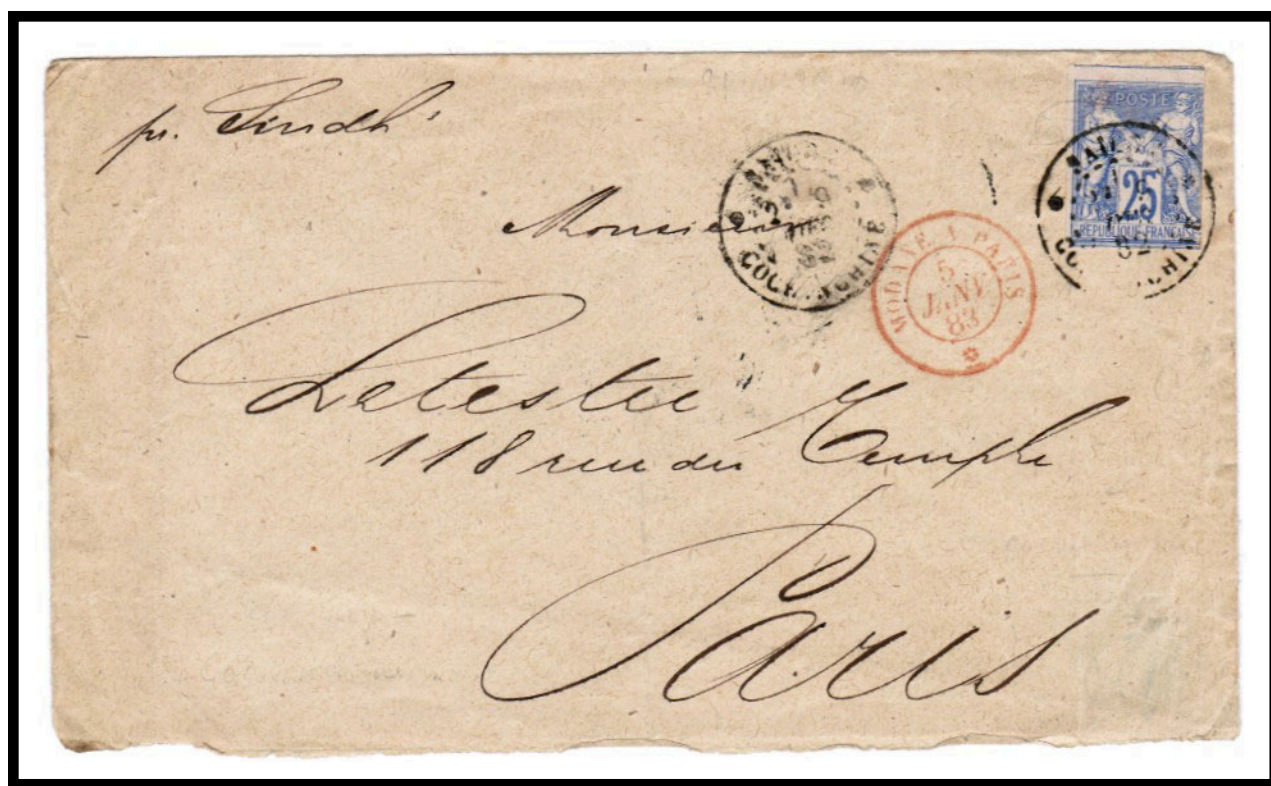 pr. Sindh
POSTE
25
REPUBLIQUE FRANCAISE
COCHINCHINE
82
MODANE A PARIS
5
JANV
83
Monsieur
Letestu
118 rue du Temple
Paris